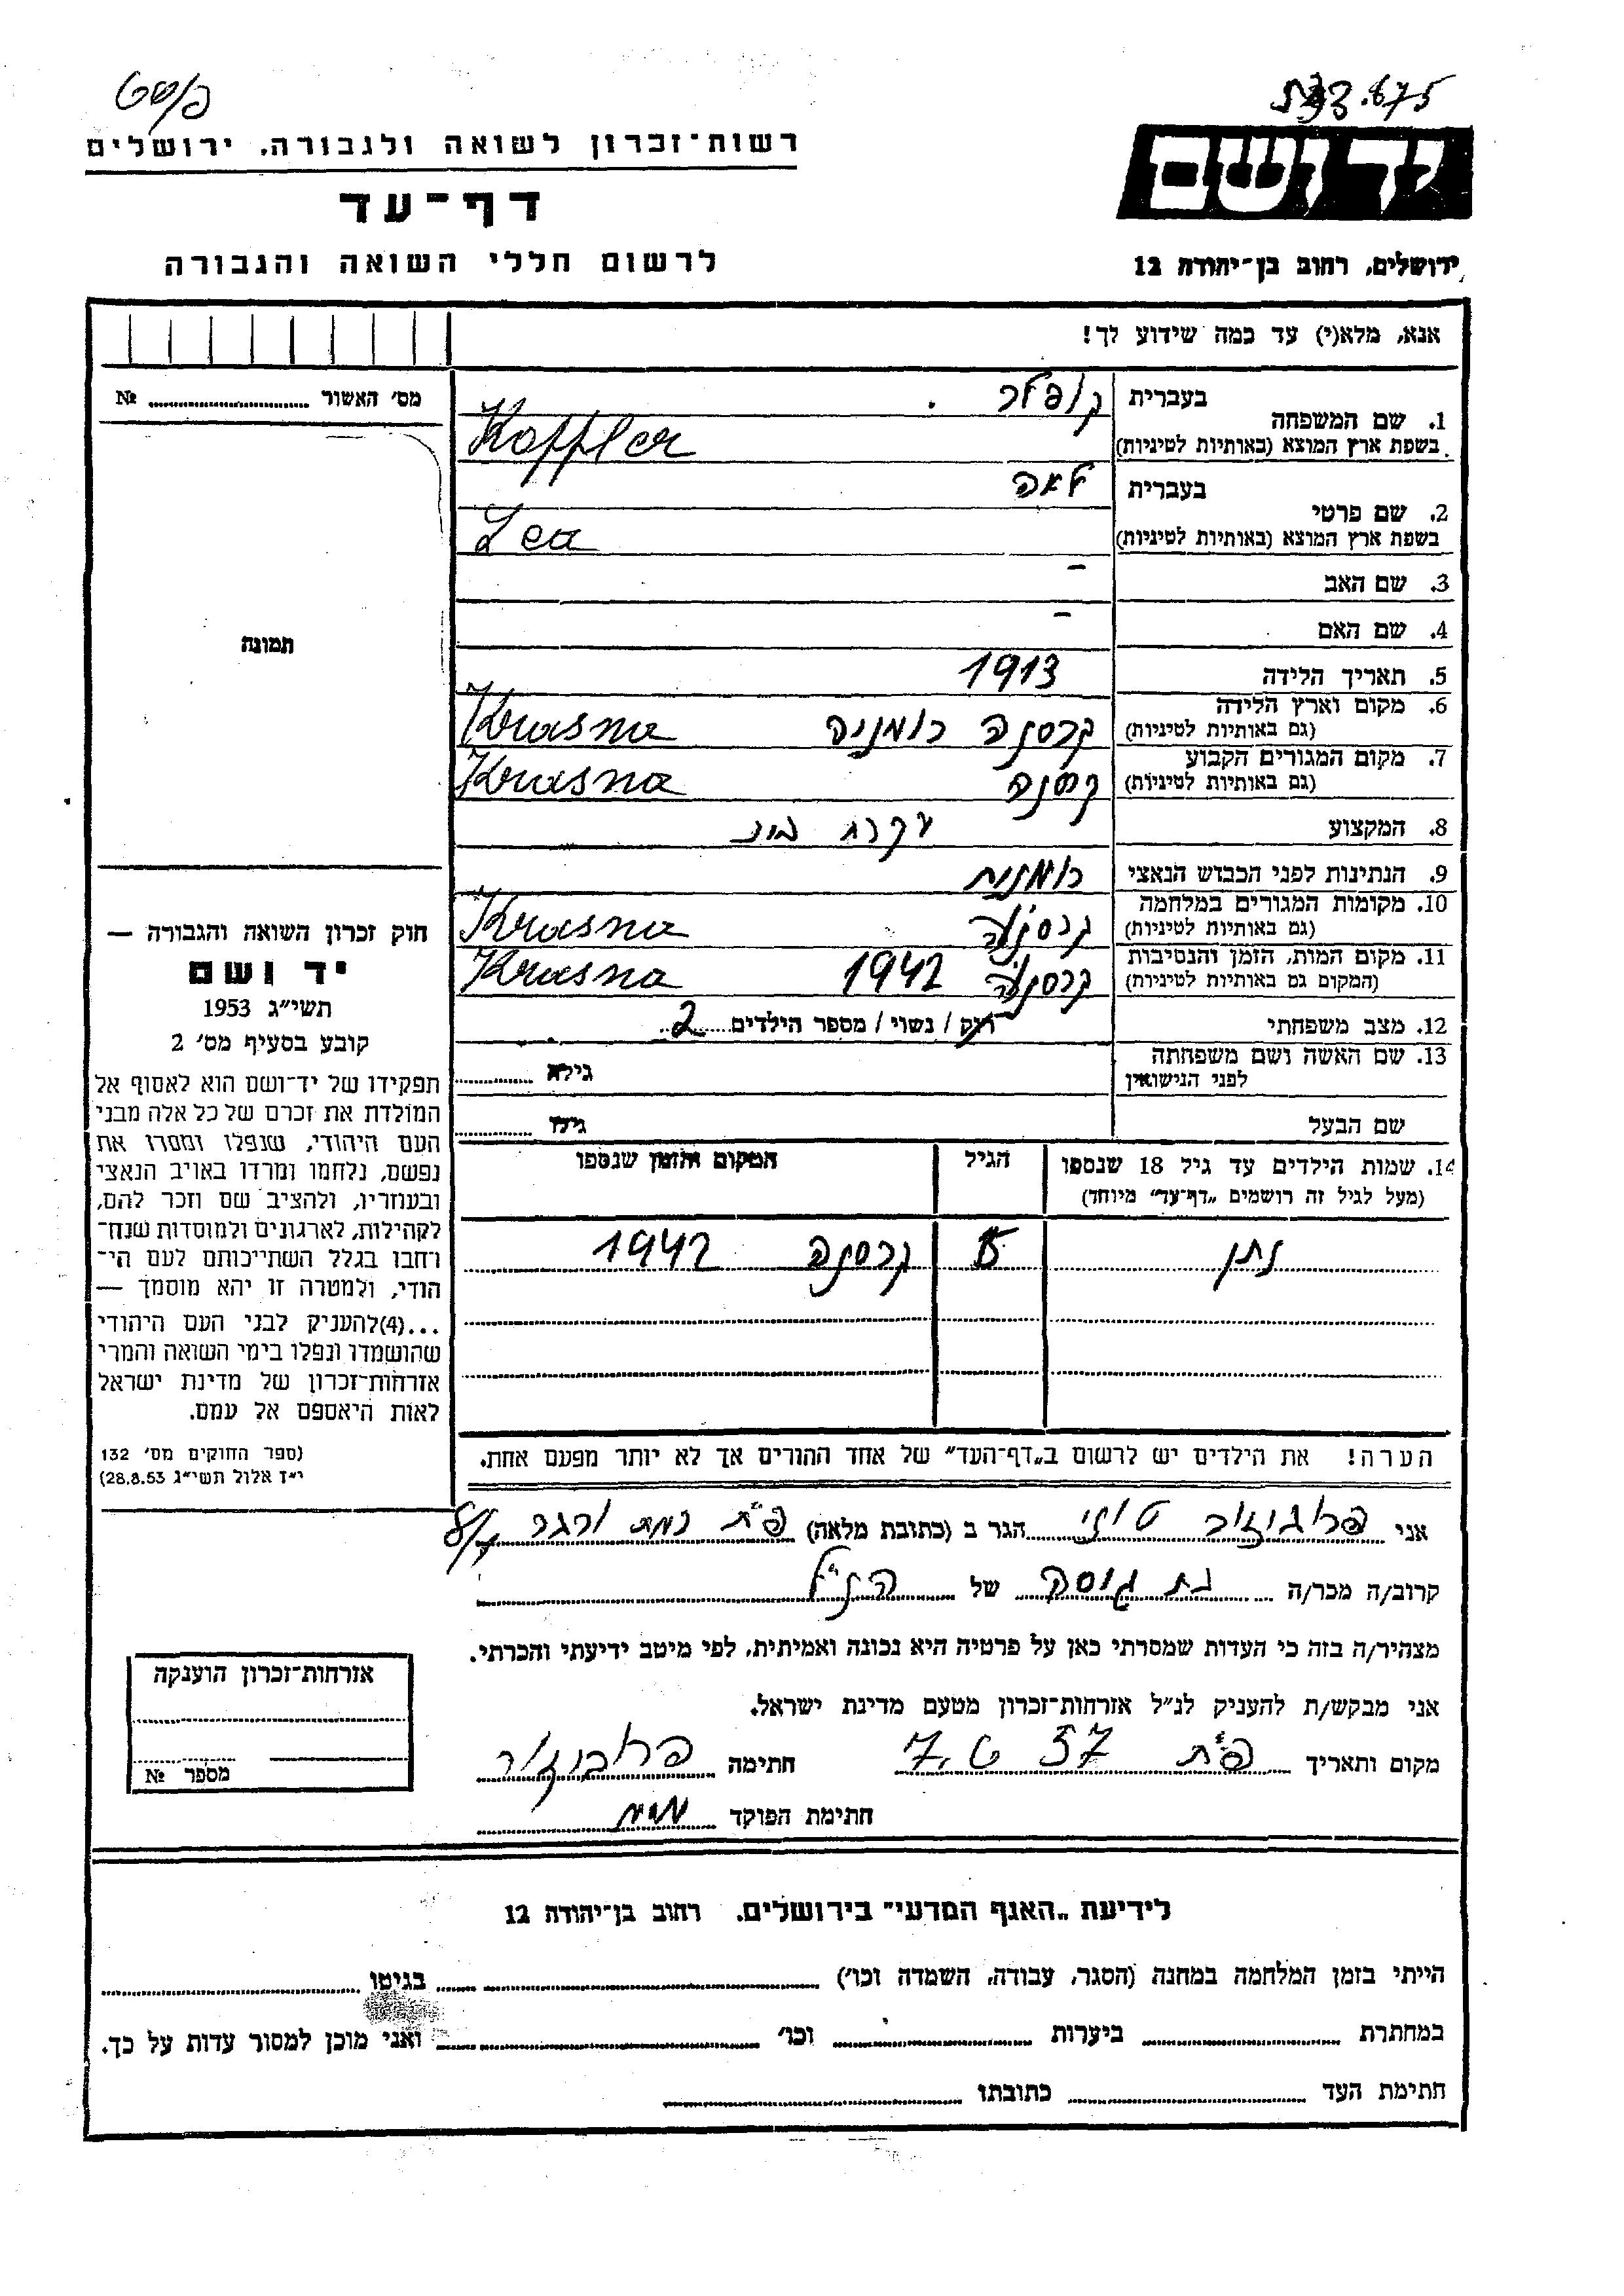 533.675
יד ושם
ירושלים, רחוב בן-יהודה 12
רשות-זכרון לשואה ולגבורה, ירושלים
דף-עד
לרשום חללי השואה והגבורה
אנא, מלא(י) עד כמה שידוע לך!
מס' האשור № ..........
תמונה
חוק זכרון השואה והגבורה —
יד ושם
תשי״ג 1953
קובע בסעיף מס' 2
תפקידו של יד-ושם הוא לאסוף אל
המולדת את זכרם של כל אלה מבני
העם היהודי, שנפלו ומסרו את
נפשם, נלחמו ומרדו באויב הנאצי
ובעוזריו, ולהציב שם וזכר להם,
לקהילות, לארגונים ולמוסדות שנח-
רחבו בגלל השתייכותם לעם הי-
הודי, ולמטרה זו יהא מוסמך —
...(4)להעניק לבני העם היהודי
שהושמדו ונפלו בימי השואה והמרי
אזרחות-זכרון של מדינת ישראל
לאות היאספם אל עמם.
(ספר החוקים מס' 132
י״ז אלול תשי״ג 28.8.53)
בעברית קופלר
1. שם המשפחה
בשפת ארץ המוצא (באותיות לטיניות) Koffler
בעברית לאה
2. שם פרטי
בשפת ארץ המוצא (באותיות לטיניות) Lea
3. שם האב –
4. שם האם –
5. תאריך הלידה 1913
6. מקום וארץ הלידה
(גם באותיות לטיניות) קרסנה רומניה Krasna
7. מקום המגורים הקבוע
(גם באותיות לטיניות) קרסנה Krasna
8. המקצוע עקרת בית
9. הנתינות לפני הכבוש הנאצי רומנית
10. מקומות המגורים במלחמה
(גם באותיות לטיניות) קרסנה Krasna
11. מקום המות, הזמן והנסיבות
(המקום גם באותיות לטיניות) קרסנה 1942 Krasna
12. מצב משפחתי רווק / נשוי / מספר הילדים 2
13. שם האשה ושם משפחתה
לפני הנישואין גילה
שם הבעל גילו
14. שמות הילדים עד גיל 18 שנספו הגיל המקום והזמן שנספו
(מעל לגיל זה רושמים „דף-עד״ מיוחד)
נתן קרסנה 1942
הערה! את הילדים יש לרשום ב„דף-העד״ של אחד ההורים אך לא יותר מפעם אחת.
אני הגר ב (כתובת מלאה) פ״ת
קרוב/ה מכר/ה בת גיסה של הנ״ל
מצהיר/ה בזה כי העדות שמסרתי כאן על פרטיה היא נכונה ואמיתית, לפי מיטב ידיעתי והכרתי.
אני מבקש/ת להעניק לנ״ל אזרחות-זכרון מטעם מדינת ישראל.
מקום ותאריך פ״ת 7. 6 57 חתימה
חתימת הפוקד
אזרחות-זכרון הוענקה
מספר №
לידיעת „האגף המדעי״ בירושלים, רחוב בן-יהודה 12
הייתי בזמן המלחמה במחנה (הסגר, עבודה, השמדה וכו') בגיטו
במחתרת ביערות וכו' ואני מוכן למסור עדות על כך.
חתימת העד כתובתו